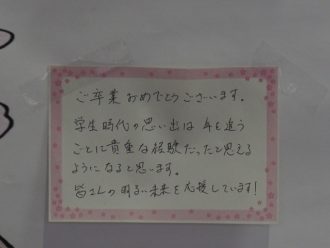 ご卒業おめでとうございます。
学生時代の思い出は年を追う
ことに貴重な経験だったと思える
ようになると思います。
皆さんの明るい未来を応援しています!